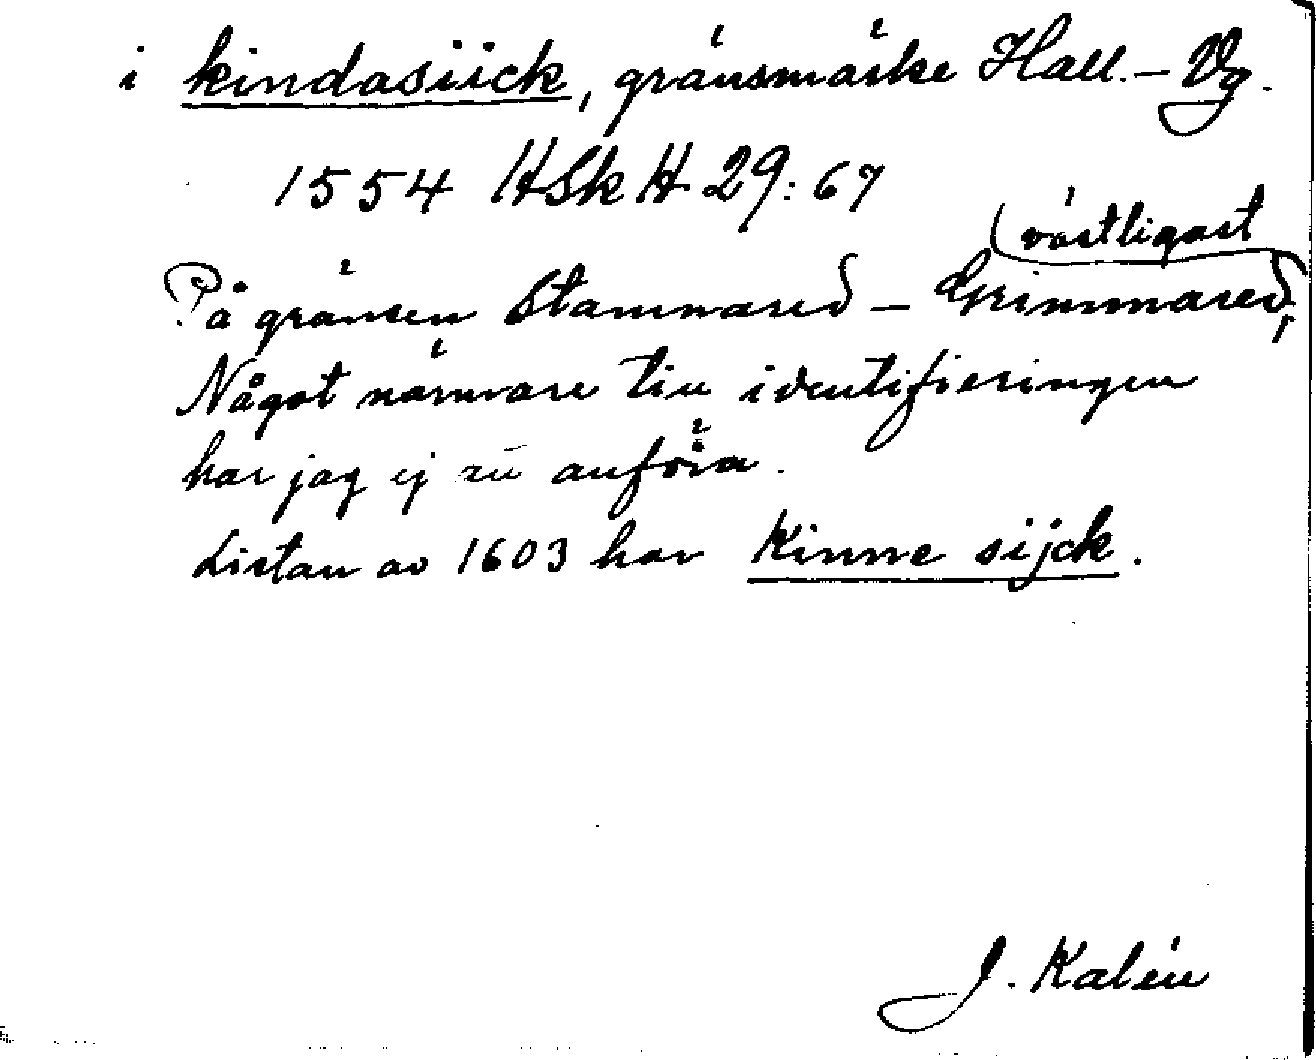 i kindasiick, gränsmärke Hall. – Vg.
1554 HSkH 29: 67
västligast
På gränsen Stamnared – Grimmared,
Något närmare till identifieringen
har jag ej att anföra.
Listan av 1603 har Kinne sijck.
J. Kalén